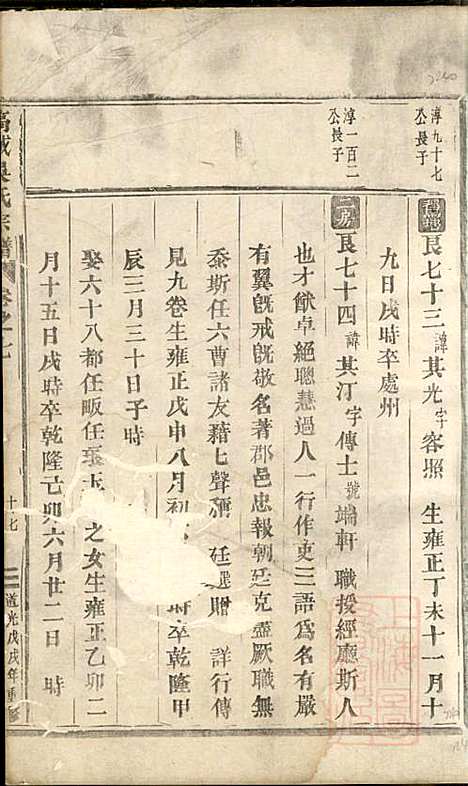 淳九十七
公長子
良七十三諱其光字容照 生雍正丁未十一月十
九日戌時卒處州
淳一百二
公長子
二房
良七十四諱其汀字傳士號端軒 職授經廳斯人
也才猷卓絕聰慧過人一行作吏三語爲名有嚴
有翼旣戒旣敬名著郡邑忠報朝廷克盡厥職無
忝斯任六曹諸友藉七聲 廷 贈 詳行傳
見九卷生雍正戊申八月初 時卒乾隆甲
辰三月三十日子時
娶六十八都任畈任 玉 之女生雍正乙卯二
月十五日戌時卒乾隆己卯六月廿二日 時
氏宗譜
卷之七
十七
道光戊戌年重修